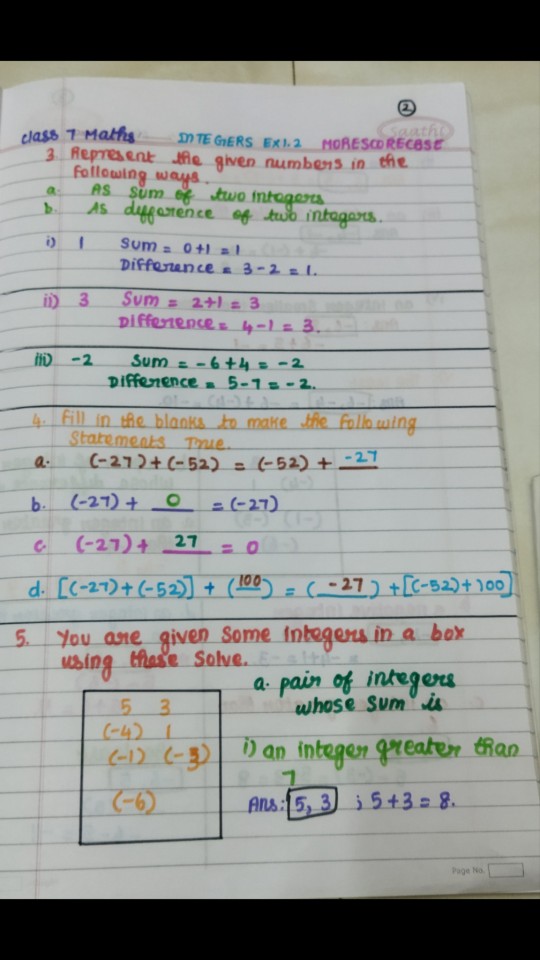 2
Saathi
Class 7 Maths INTEGERS EX1.2 MORESCORECBSE
3. Represent the given numbers in the
following ways.
a. AS sum of two integers
b. As difference of two integers.
i) 1 Sum = 0+1 = 1
Difference = 3-2 = 1.
ii) 3 Sum = 2+1 = 3
Difference = 4-1 = 3.
iii) -2 Sum = -6+4 = -2
Difference = 5-7 = -2.
4. Fill in the blanks to make the following
Statements True.
a. (-27)+(-52) = (-52) + -27
b. (-27) + 0 = (-27)
c. (-27) + 27 = 0
d. [(-27)+(-52)] + (100) = ( -27 ) + [(-52)+100]
5. You are given some integers in a box
using these solve.
a. pair of integers
whose sum is
5 3
(-4) 1
(-1) (-3)
(-6)
i) an integer greater than
7
Ans: 5, 3 ; 5+3 = 8.
Page No.